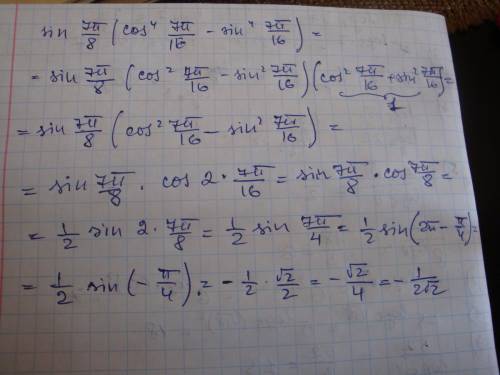 sin 7π/8 (cos⁴ 7π/16 - sin⁴ 7π/16) =
= sin 7π/8 (cos² 7π/16 - sin² 7π/16)(cos² 7π/16 + sin² 7π/16) =
1
= sin 7π/8 (cos² 7π/16 - sin² 7π/16) =
= sin 7π/8 · cos 2 · 7π/16 = sin 7π/8 · cos 7π/8 =
= 1/2 sin 2 · 7π/8 = 1/2 sin 7π/4 = 1/2 sin(2π - π/4) =
= 1/2 sin(-π/4) = - 1/2 · √2/2 = - √2/4 = - 1/2√2